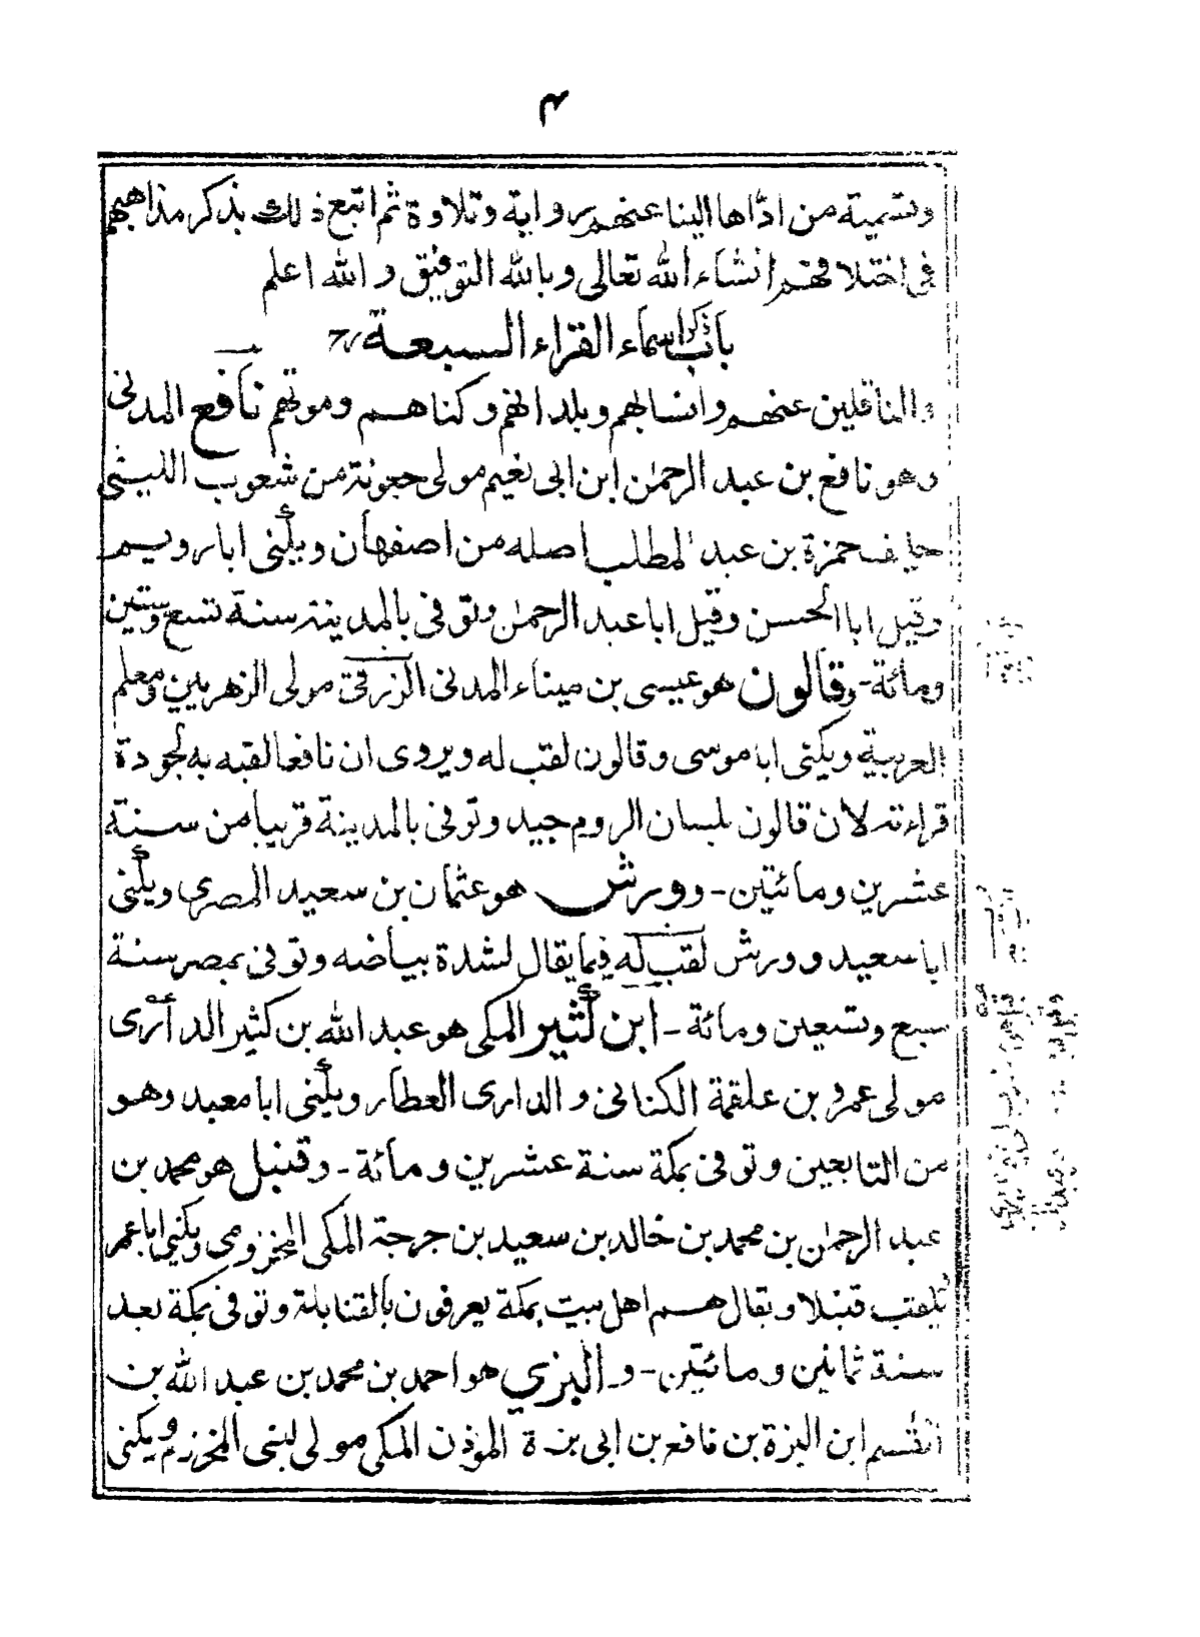 ۴
وتسمية من ادّاها الينا عنهم رواية وتلاوة ثم اتبع ذلك بذكر مذاهبهم
فى اختلافهم انشاء الله تعالى وبالله التوفيق والله اعلم
باب ذكر اسماء القراء السبعة
والناقلين عنهم وانسابهم وبلدانهم وكناهم وموتهم نافع المدنى
وهو نافع بن عبد الرحمٰن ابن ابى نعيم مولى جعونة من شعوب الليثى
حليف حمزة بن عبد المطلب اصله من اصفهان ويكنى ابا رويم
وقيل ابا الحسن وقيل ابا عبد الرحمٰن وتوفى بالمدينة سنة تسع وستين
ومائة - وقالون هو عيسى بن ميناء المدنى الزرقى مولى الزهريين ومعلم
العربية ويكنى ابا موسى وقالون لقب له ويروى ان نافعا لقبه به لجودة
قراءته لان قالون بلسان الروم جيد وتوفى بالمدينة قريبا من سنة
عشرين ومائتين - وورش هو عثمان بن سعيد المصرى ويكنى
ابا سعيد وورش لقب له فيما يقال لشدة بياضه وتوفى بمصر سنة
سبع وتسعين ومائة - ابن كثير المكى هو عبد الله بن كثير الدارى
مولى عمرو بن علقمة الكنانى والدارى العطار ويكنى ابا معبد وهو
من التابعين وتوفى بمكة سنة عشرين ومائة - وقنبل هو محمد بن
عبد الرحمٰن بن محمد بن خالد بن سعيد بن جرجة المكى المخزومى ويكنى ابا عمر
يلقب قنبلا ويقال هم اهل بيت بمكة يعرفون بالقنابلة وتوفى بمكة بعد
سنة ثمانين ومائتين - والبزي هو احمد بن محمد بن عبد الله بن
القسم ابن البزة بن نافع بن ابى بزة المؤذن المكى مولى لبنى المخزوم ويكنى